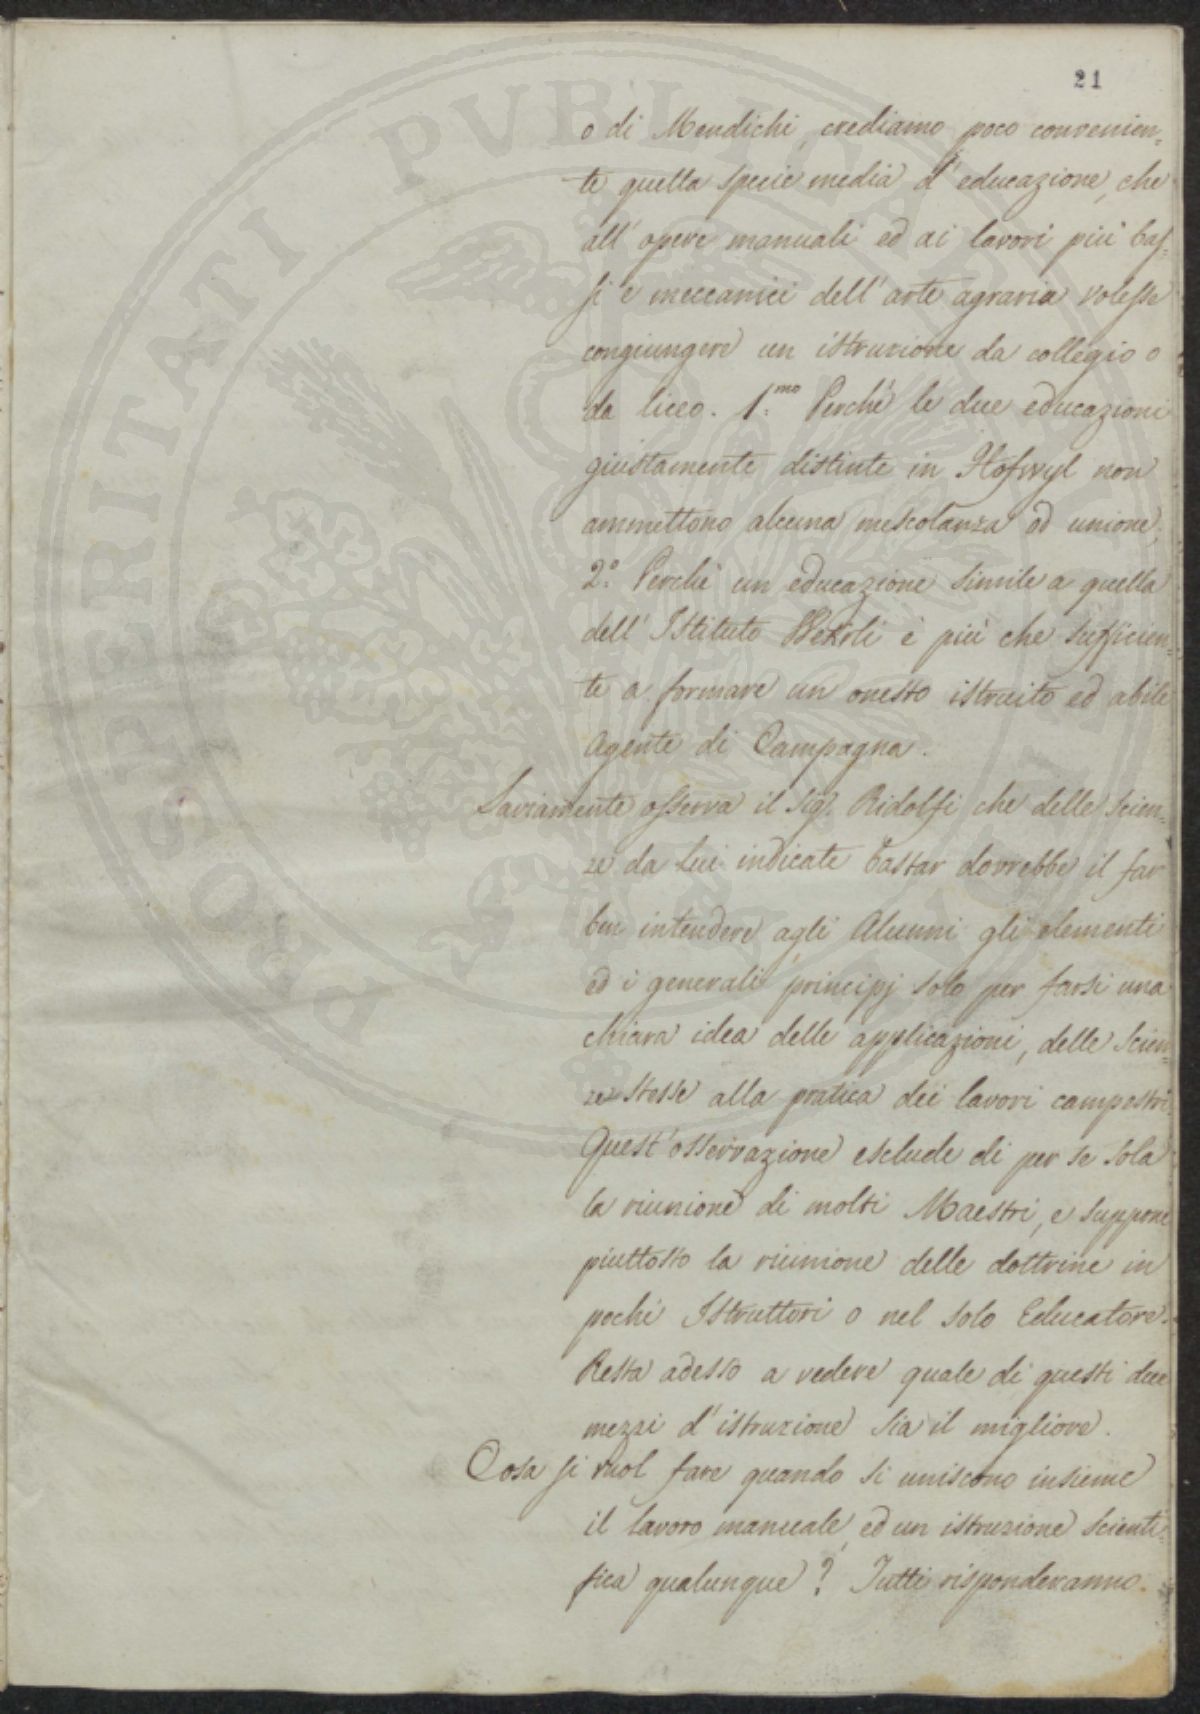 21
o di Mendichi, crediamo poco convenien=
te quella specie media d'educazione, che
all'opere manuali ed ai lavori più bas=
si e meccanici dell'arte agraria volesse
congiungere un istruzione da collegio o
da liceo. 1.mo Perchè le due educazioni
giustamente distinte in Hofwyl non
ammettono alcuna mescolanza od unione.
2.° Perchè un educazione simile a quella
dell'Istituto Wehrli è più che sufficien=
te a formare un onesto istruito ed abile
Agente di Campagna.
Saviamente osserva il Sig. Ridolfi che delle scien=
ze da lui indicate bastar dovrebbe il far
ben intendere agli Alunni gli elementi
ed i generali principj solo per farsi una
chiara idea delle applicazioni, delle scien=
ze stesse alla pratica dei lavori campestri.
Quest'osservazione esclude di per se sola
la riunione di molti Maestri, e suppone
piuttosto la riunione delle dottrine in
pochi Istruttori o nel solo Educatore.
Resta adesso a vedere quale di questi due
mezzi d'istruzione sia il migliore.
Cosa si vuol fare quando si uniscono insieme
il lavoro manuale, ed un istruzione scienti=
fica qualunque? Tutti risponderanno.
PROSPERITATI PVBLICAE